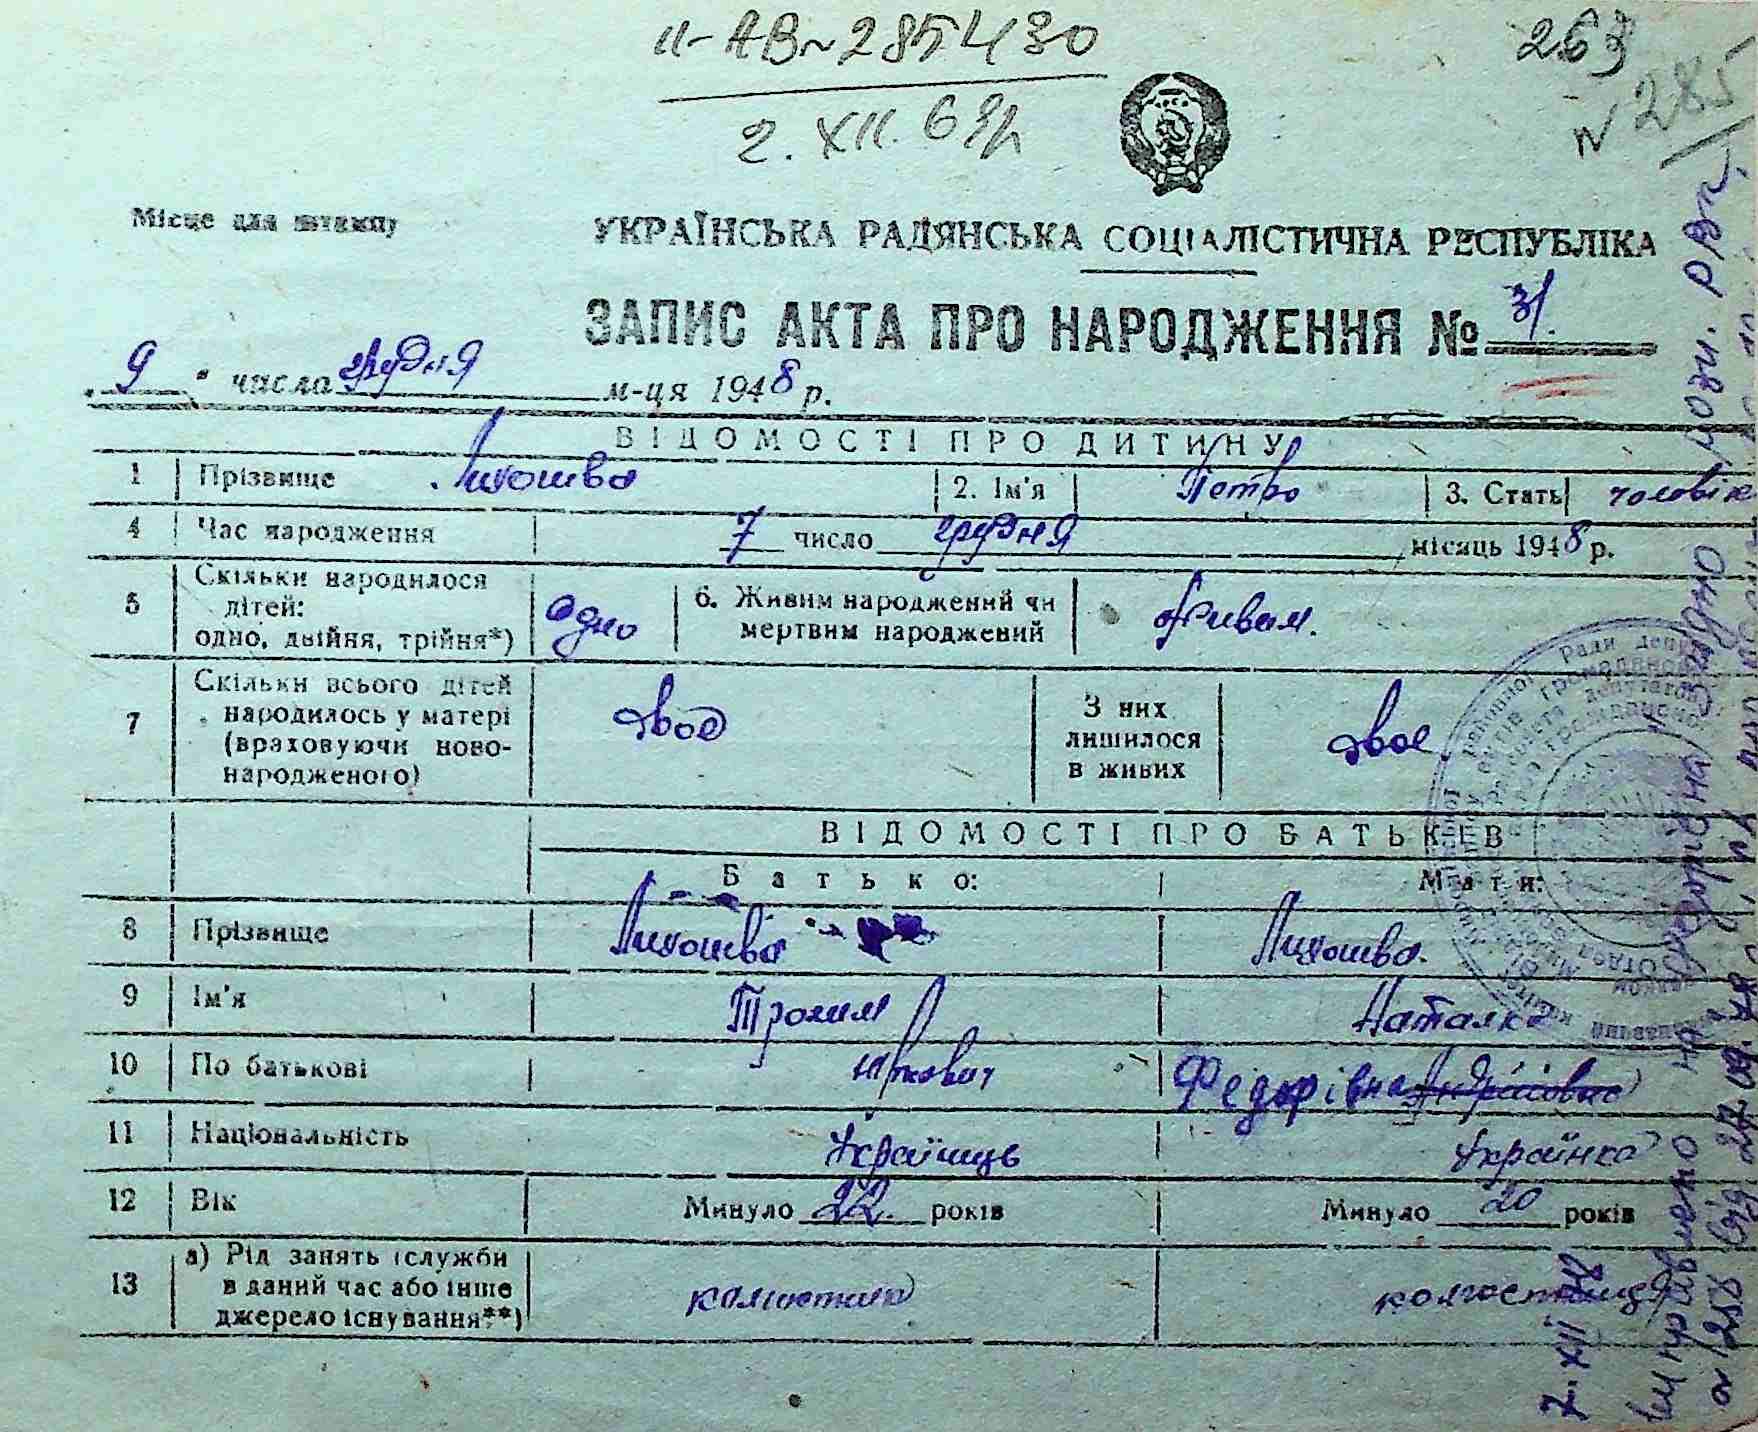 II-АВ№285430
263
2. XII. 69р
N 285
Місце для штампу
УКРАЇНСЬКА РАДЯНСЬКА СОЦІАЛІСТИЧНА РЕСПУБЛІКА
ЗАПИС АКТА ПРО НАРОДЖЕННЯ № 31.
„ 9 " числа грудня м-ця 1948 р.
ВІДОМОСТІ ПРО ДИТИНУ
1 Прізвище Лихошва 2. Ім'я Петро 3. Стать чоловік
4 Час народження 7 число грудня місяць 1948 р.
5 Скільки народилося
дітей:
одно, двійня, трійня*) одно 6. Живим народжений чи
мертвим народжений живим.
7 Скільки всього дітей
народилось у матері
(враховуючи ново-
народженого) двоє З них
лишилося
в живих двоє
ВІДОМОСТІ ПРО БАТЬКІВ
Батько: Мати:
8 Прізвище Лихошва Лихошва.
9 Ім'я Трохим Наталка
10 По батькові Юркович Федорівна
11 Національність Українець Українка
12 Вік Минуло 22. років Минуло 20 років
13 а) Рід занять (служби
в даний час або інше
джерело існування**) колгоспник колгоспниця
7. XII 48
виправлено на Федорівна згідно